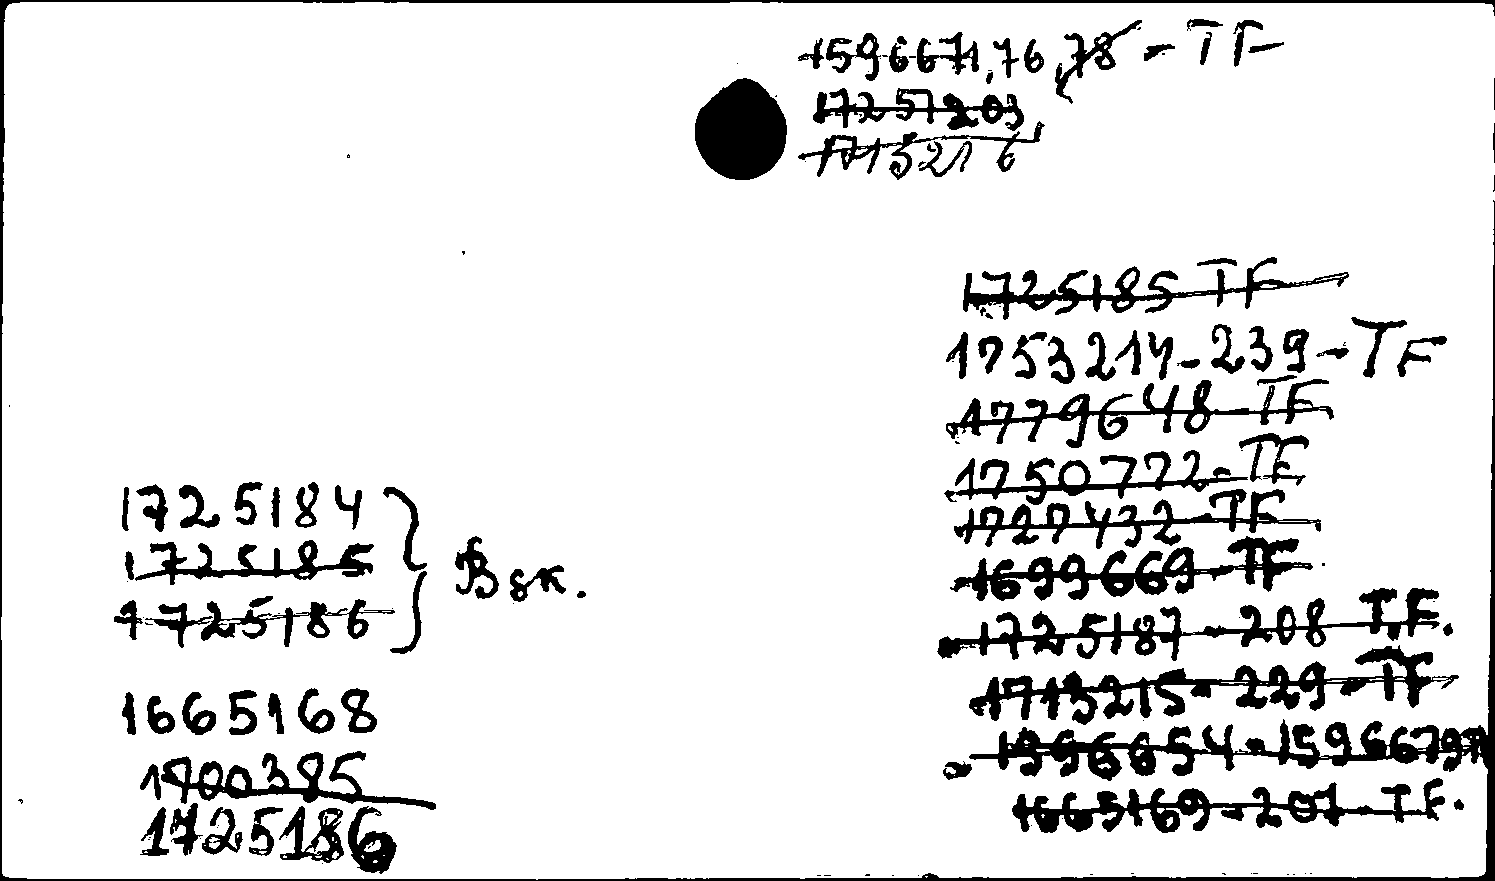 1596671,76,78 - TF
17251203,
1715216
1725185 TF
1753214-239-TF
1779648-TF
1750772-TF
1727432-TF
1699669-TF
1725187-208 T.F.
1713215-229-TF
1596654-1596679
1665169-207-TF.
1725184
1725185
1725186
Вяк.
1665168
1700385
1725186